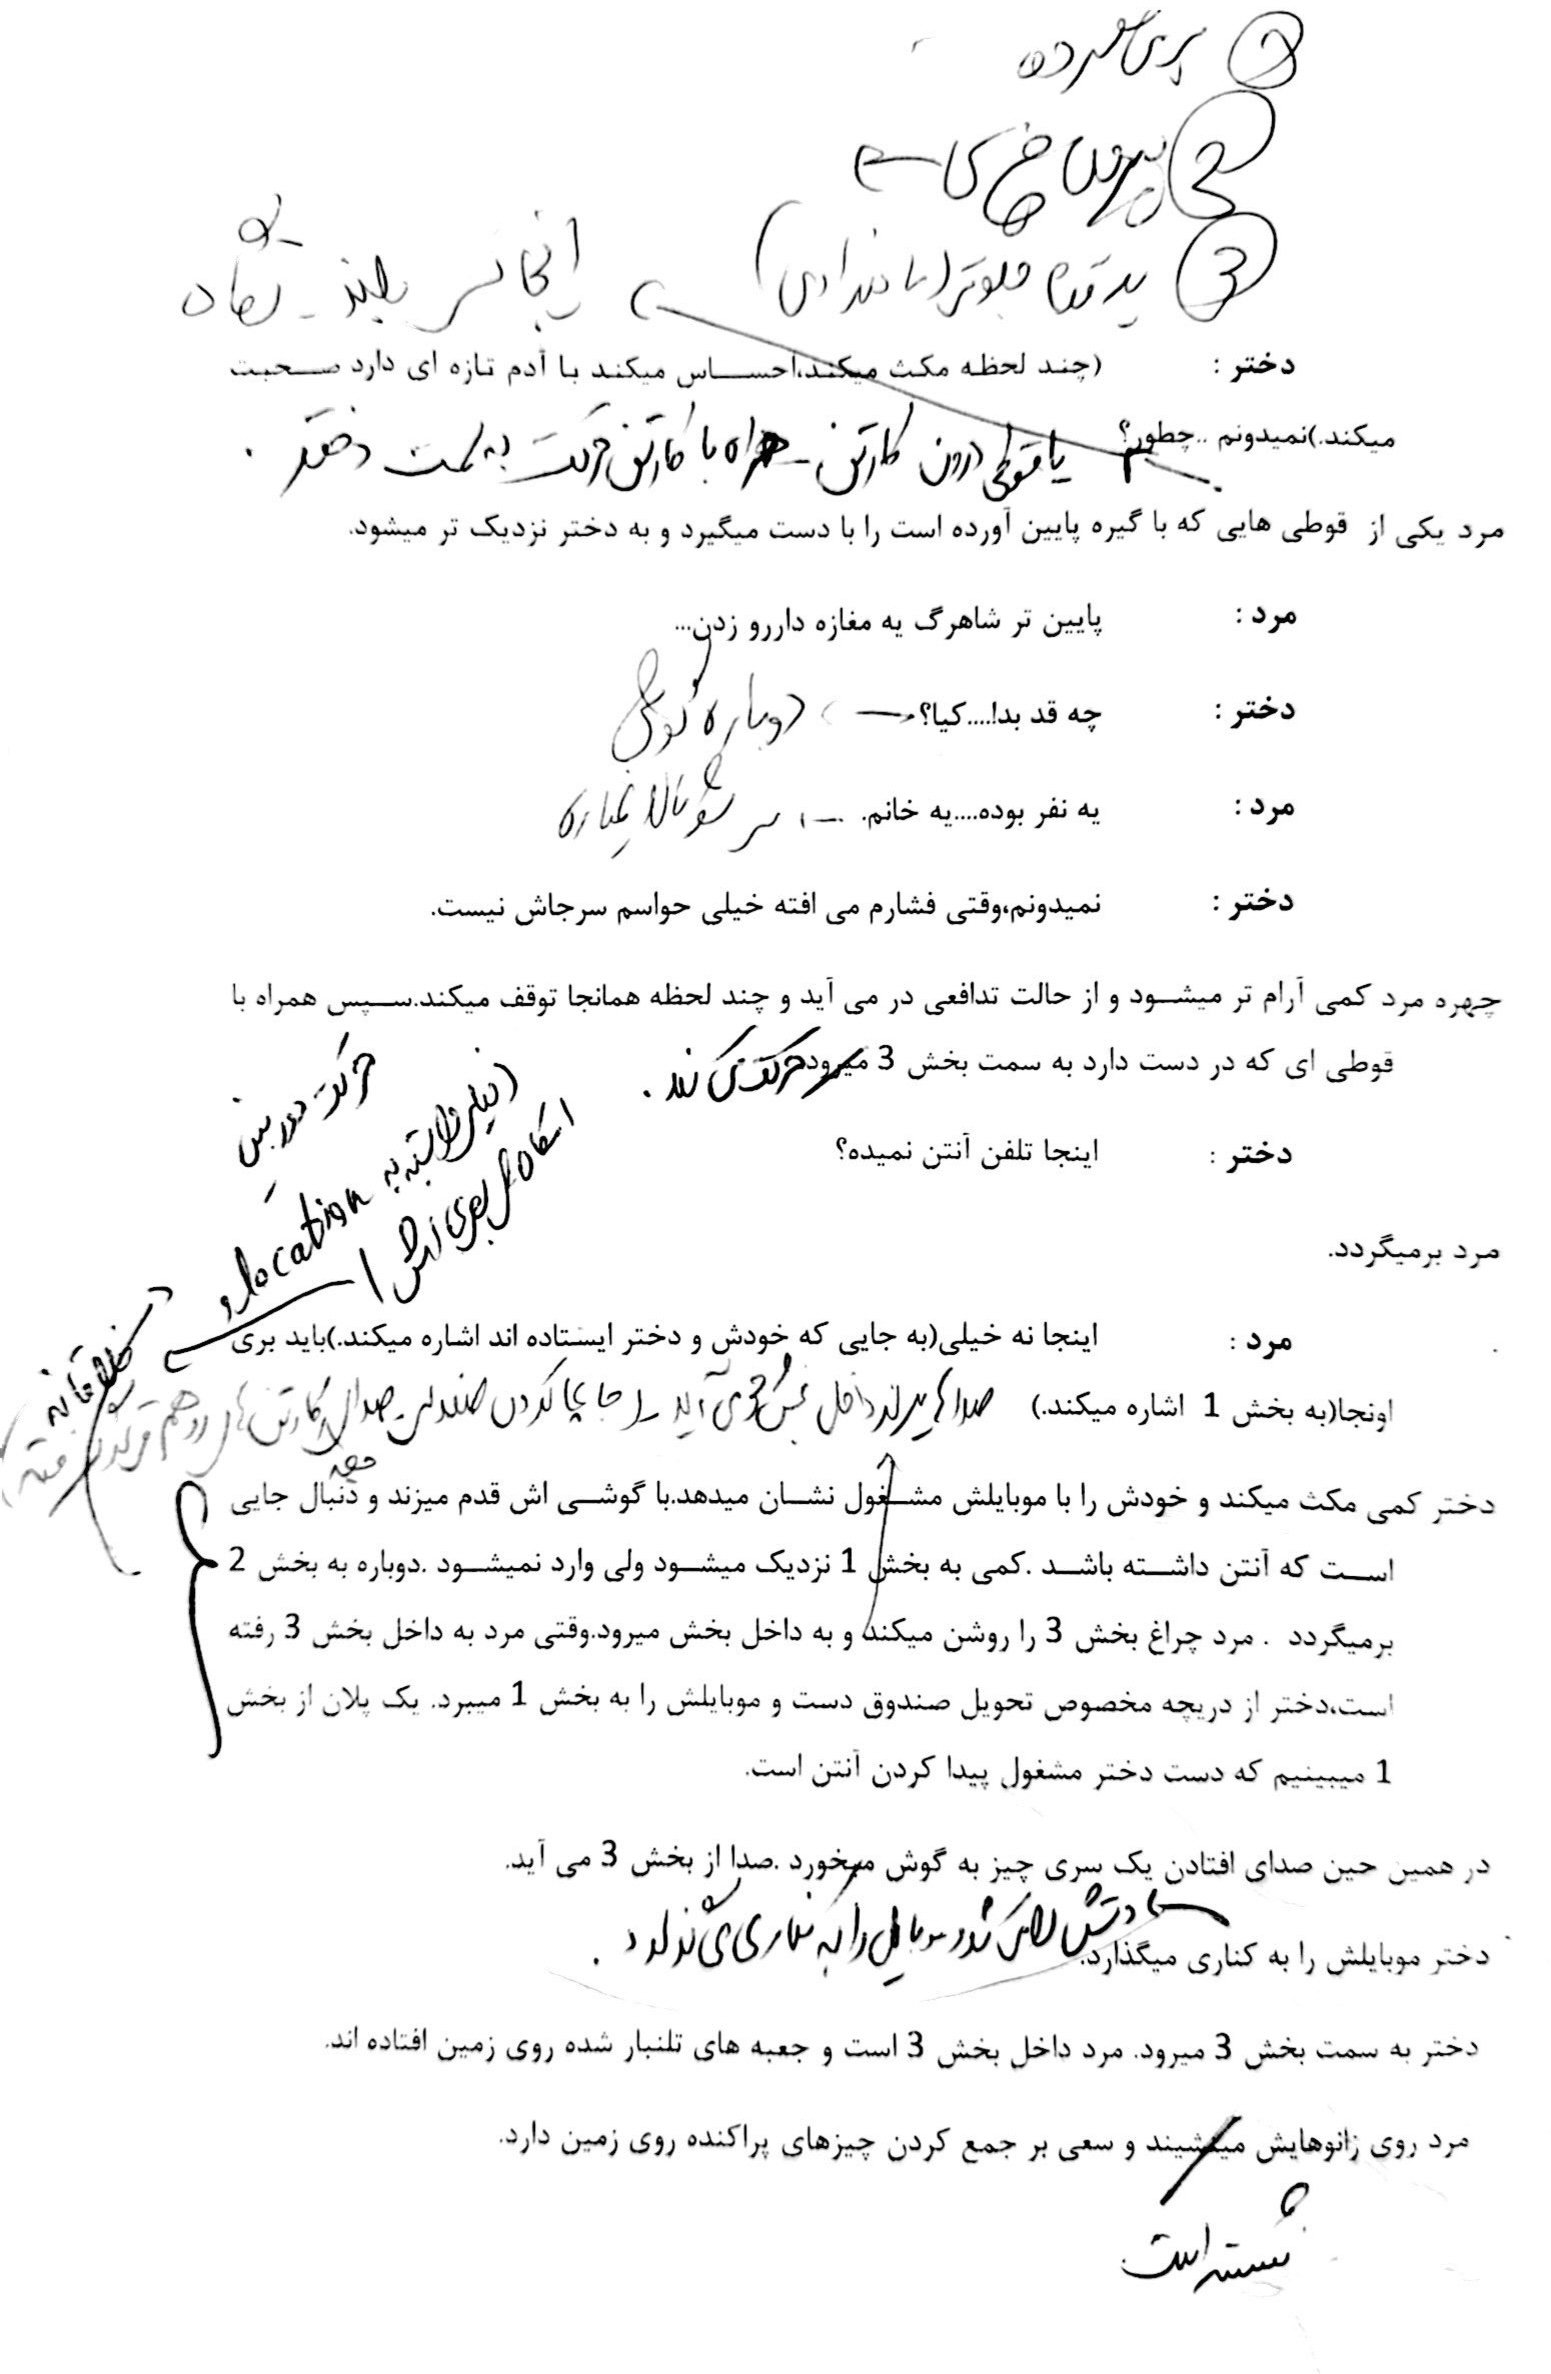 2
3
یه قدم جلوتر
اینجا سر بلند
دختر : (چند لحظه مکث میکند،احساس میکند با آدم تازه ای دارد صحبت
میکند.)نمیدونم ..چطور؟
یا قوطی درون کارتن - همراه با کارتن حرکت به سمت دختر .
مرد یکی از قوطی هایی که با گیره پایین آورده است را با دست میگیرد و به دختر نزدیک تر میشود.
مرد : پایین تر شاهرگ یه مغازه داررو زدن...
دختر : چه قد بد!....کیا؟ دوباره گوشی
مرد : یه نفر بوده....یه خانم. سر شو بالا نمیاره
دختر : نمیدونم،وقتی فشارم می افته خیلی حواسم سرجاش نیست.
چهره مرد کمی آرام تر میشود و از حالت تدافعی در می آید و چند لحظه همانجا توقف میکند.سپس همراه با
قوطی ای که در دست دارد به سمت بخش 3 میرود حرکت می کند .
حرکت دوربین
(خیلی وابسته به
location و
دختر : اینجا تلفن آنتن نمیده؟
مرد برمیگردد.
مرد : اینجا نه خیلی(به جایی که خودش و دختر ایستاده اند اشاره میکند.)باید بری
اونجا(به بخش 1 اشاره میکند.)
دختر کمی مکث میکند و خودش را با موبایلش مشغول نشان میدهد.با گوشی اش قدم میزند و دنبال جایی
است که آنتن داشته باشد .کمی به بخش 1 نزدیک میشود ولی وارد نمیشود .دوباره به بخش 2
برمیگردد . مرد چراغ بخش 3 را روشن میکند و به داخل بخش میرود.وقتی مرد به داخل بخش 3 رفته
است،دختر از دریچه مخصوص تحویل صندوق دست و موبایلش را به بخش 1 میبرد. یک پلان از بخش
1 میبینیم که دست دختر مشغول پیدا کردن آنتن است.
در همین حین صدای افتادن یک سری چیز به گوش میخورد .صدا از بخش 3 می آید.
دختر موبایلش را به کناری میگذارد.
دختر به سمت بخش 3 میرود. مرد داخل بخش 3 است و جعبه های تلنبار شده روی زمین افتاده اند.
مرد روی زانوهایش مینشیند و سعی بر جمع کردن چیزهای پراکنده روی زمین دارد.
نشسته است